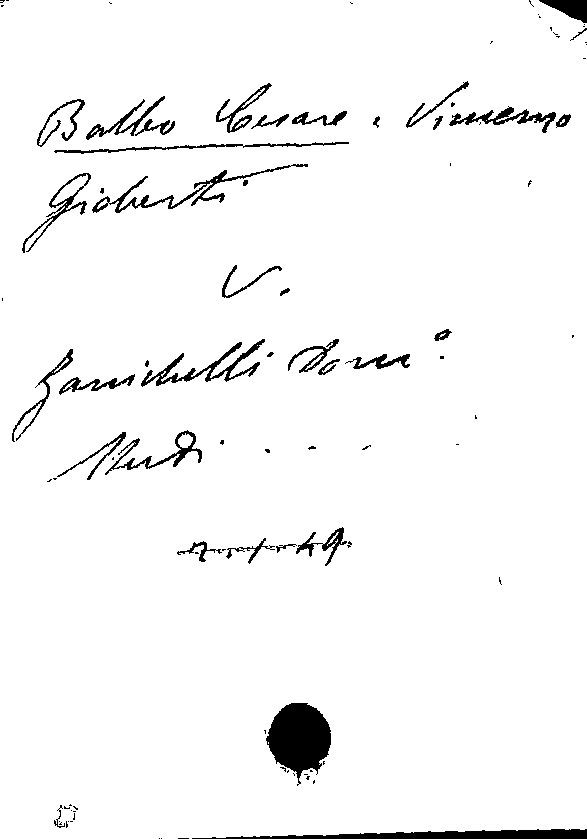 Balbo Cesare e Vincenzo
Gioberti
V.
Zanichelli Domº.
Studi . . .